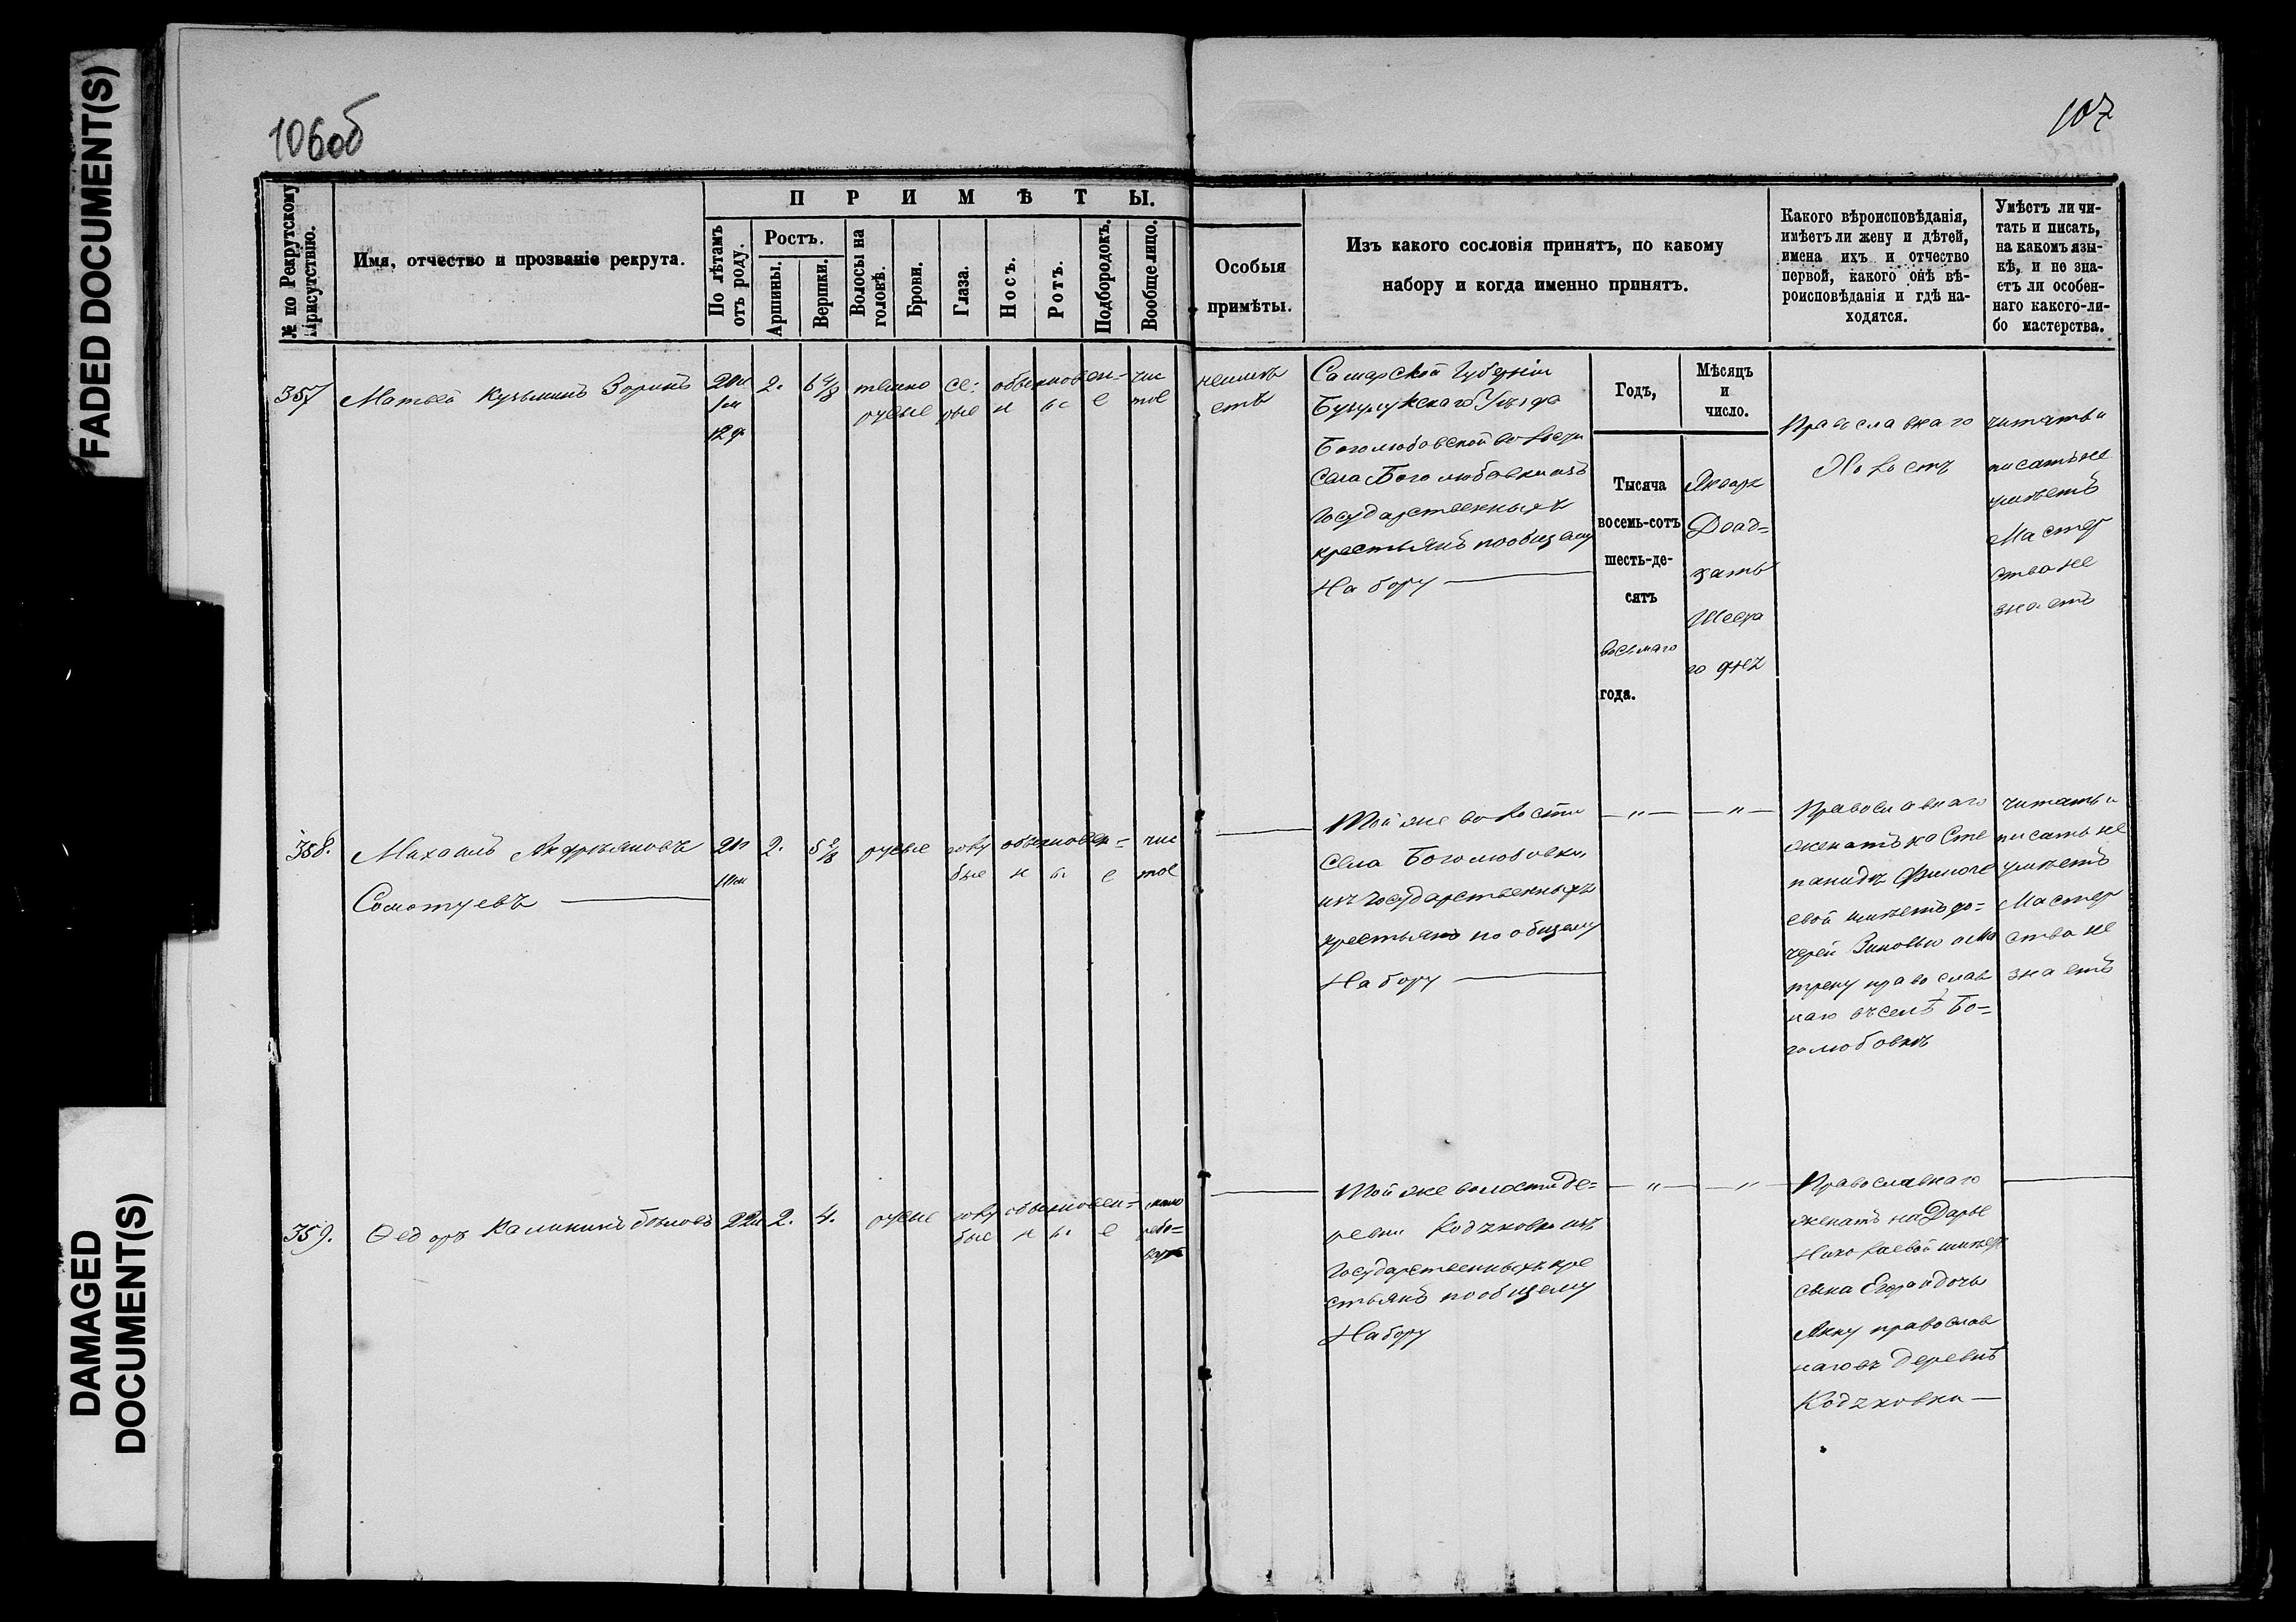 FADED DOCUMENT(S)
DAMAGED
DOCUMENT(S)
106об
107
№ по Рекрутскому
Присутствію.
Имя, отчество и прозваніе рекрута.
ПРИМѢТЫ.
По лѣтамъ
отъ роду.
Ростъ.
Аршины.
Вершки.
Волосы на
головѣ.
Брови.
Глаза.
Носъ.
Ротъ.
Подбородокъ.
Вообще лицо.
Особыя
примѣты.
Изъ какого сословія принятъ, по какому
набору и когда именно принятъ.
Какого вѣроисповѣданія,
имѣетъ ли жену и дѣтей,
имена ихъ и отчество
первой, какого онѣ вѣ-
роисповѣданія и гдѣ на-
ходятся.
Умѣетъ ли чи-
тать и писать,
на какомъ язы-
кѣ, и не зна-
етъ ли особен-
наго какого-ли-
бо мастерства.
357
Матвей Кузьминъ Зоринъ
20л
1м
12д
2.
6 4/8
темно
русые
се:
рые
обыкновен=
н ы е
чис
тое
неимѣ
етъ
Самарской Губерніи
Бузулукскаго Уѣзда
Боголюбовской волости
Села Боголюбовки изъ
Государственныхъ
крестьянъ по общему
Набору
Годъ,
Тысяча
восемь-сотъ
шесть-де-
сятъ
восьмаго
года.
Мѣсяцъ
и
число.
Января
Двад=
цать
Шеста
го дня
Православнаго
Холостъ
читать и
писать не
умѣетъ
Мастер
ства не
знаетъ
358.
Михаилъ Андреяновъ
2.
русые
голу
бые
обыкновен=
н ы е
чис
тое
Той же волости
Села Боголюбовки
изъ Государственныхъ
крестьянъ по общему
Набору
— " —
— " —
Православнаго
женатъ на Сте
паниде
свой имѣетъ до=
черей Зиновью и Ма
трену православ
наго въ селѣ Бо=
голюбовкѣ
читать и
писать не
умѣетъ
Мастер
ства не
знаетъ
359.
Ѳедоръ Калининъ Бѣловъ
22л
2.
4.
русые
голу
бые
обыкновен=
н ы е
Той же волости де=
ревни
Государственныхъ кре
стьянъ по общему
Набору
— " —
— " —
Православнаго
женатъ на Дарье
Николаевой имѣетъ
сына Егора и дочь
Анну православ
наго въ деревнѣ